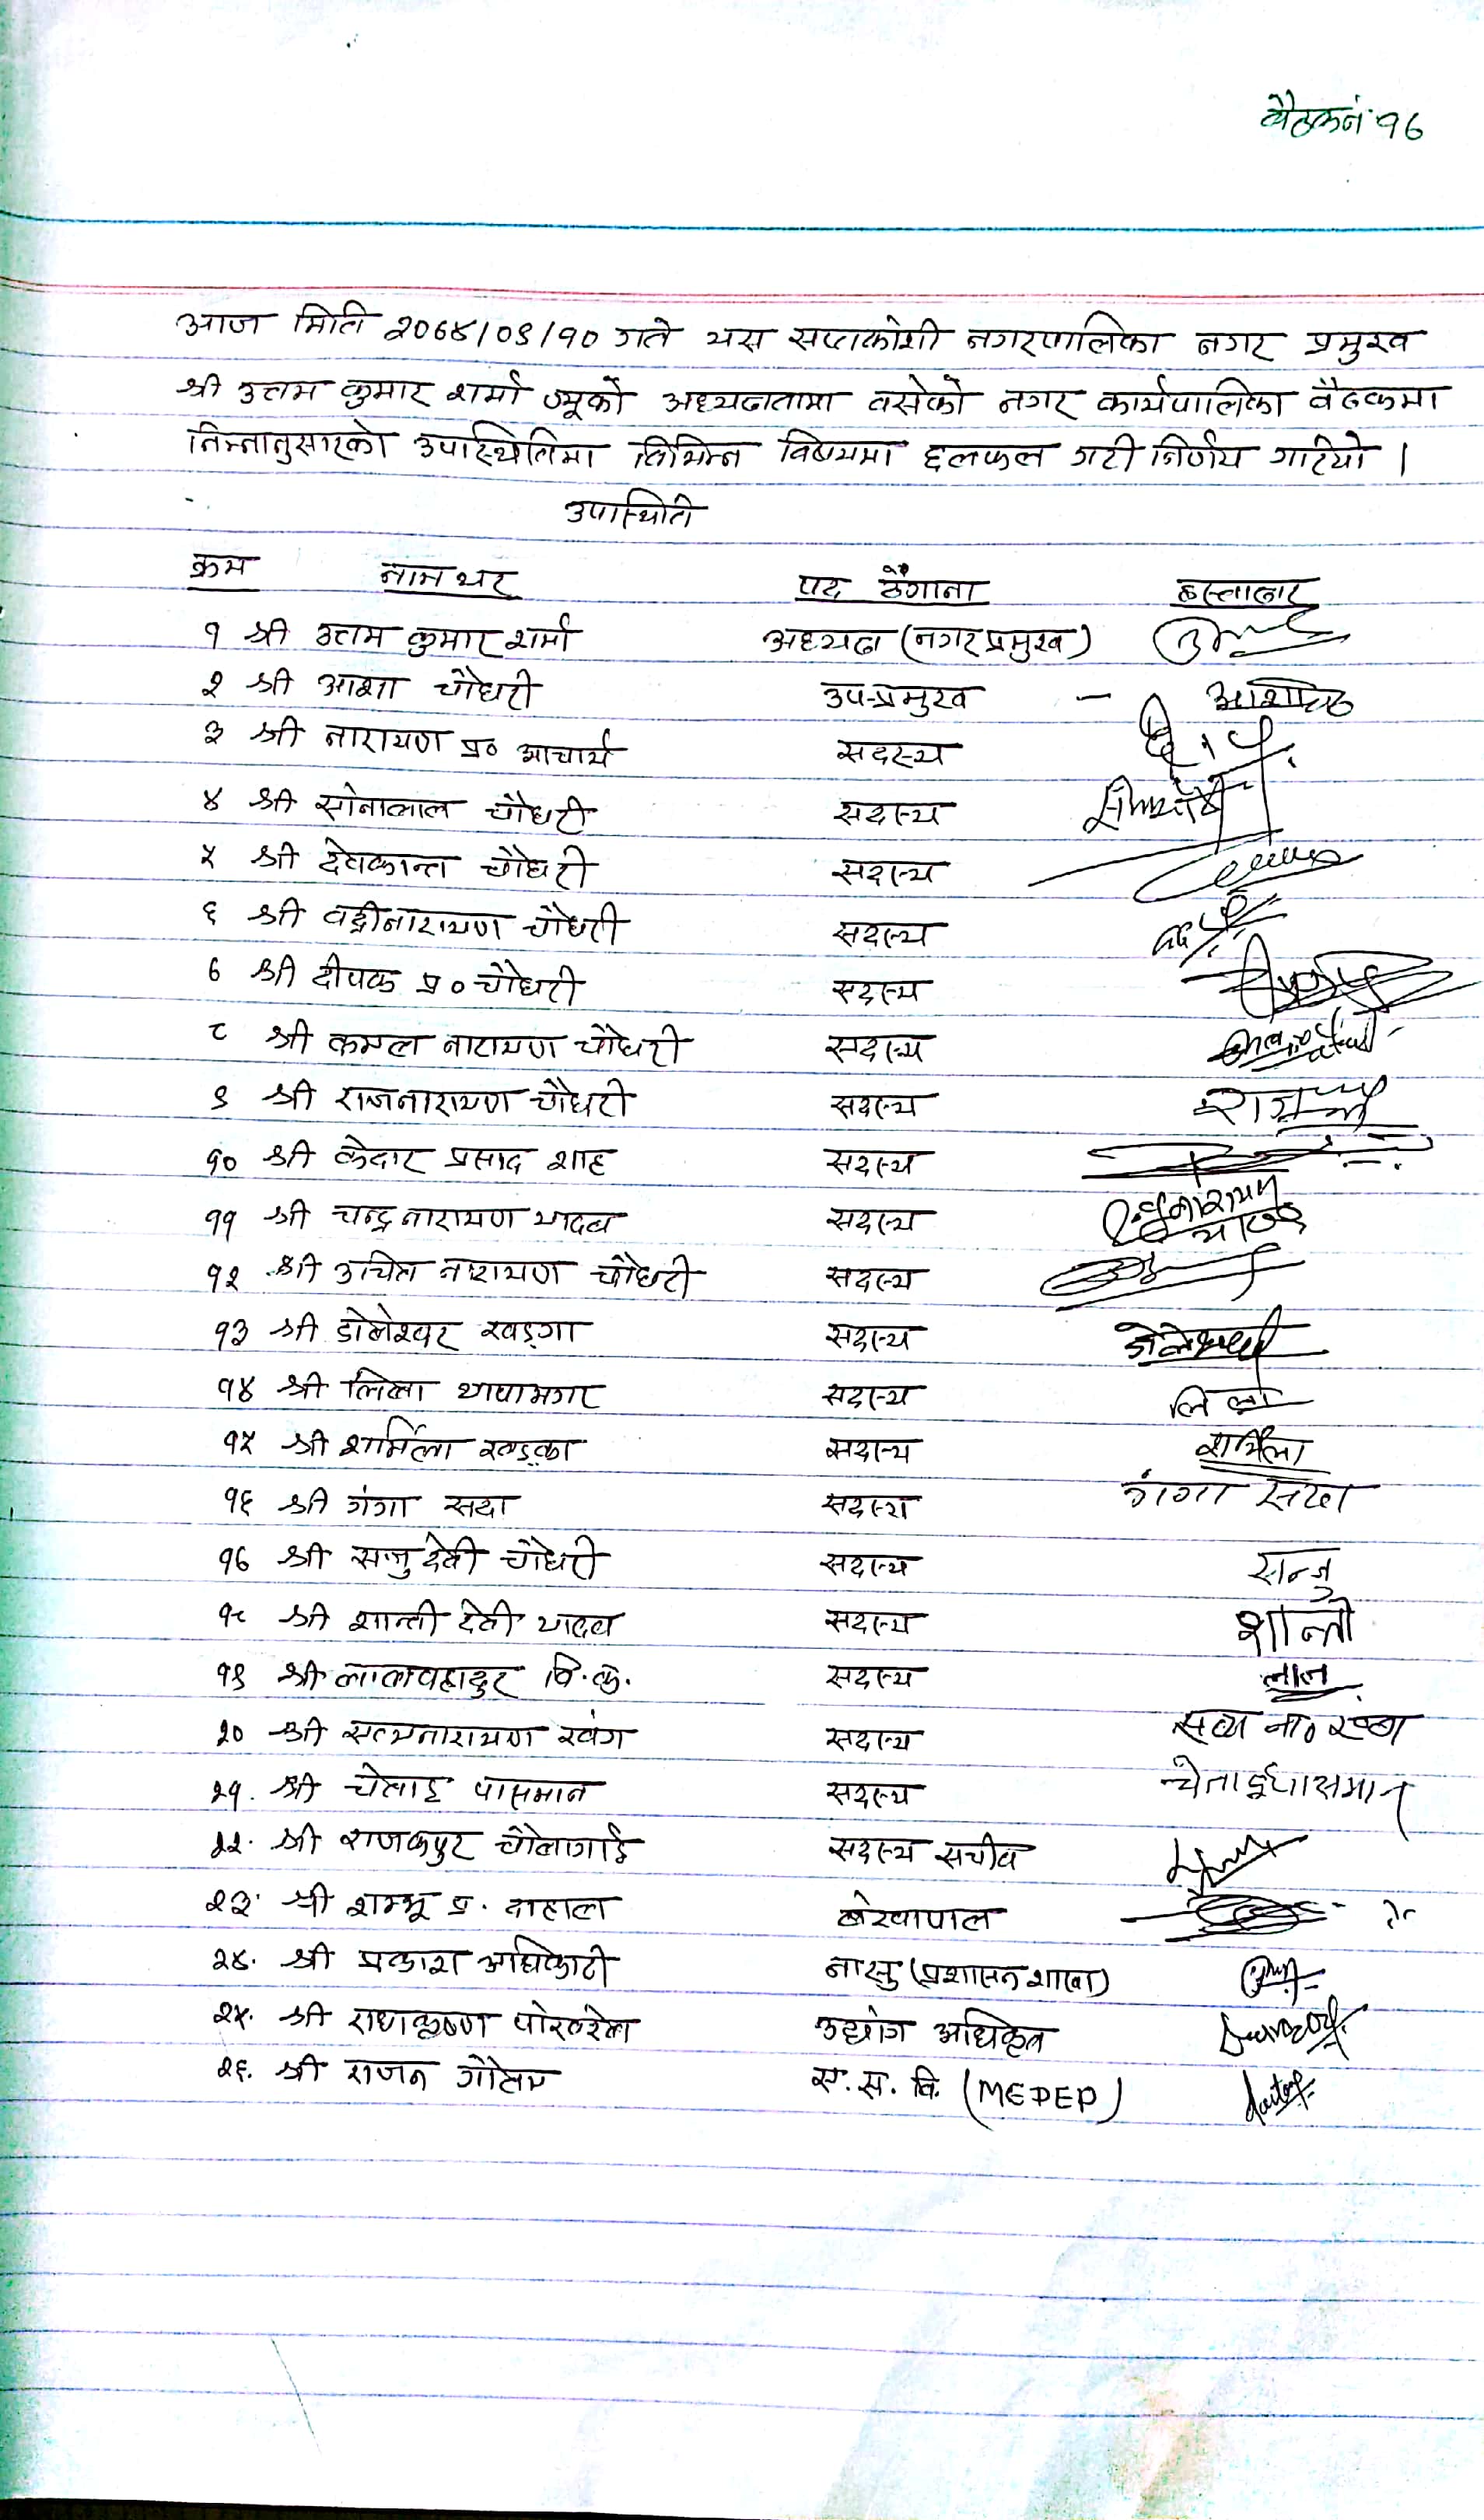 बैठक नं १७
आज मिति २०७५/०९/१० गते यस सप्तकोशी नगरपालिका नगर प्रमुख
श्री उत्तम कुमार शर्मा ज्यूको अध्यक्षतामा वसेको नगर कार्यपालिका वैठकमा
निम्नानुसारको उपस्थितिमा विभिन्न विषयमा छलफल गरी निर्णय गरियो ।
उपस्थिती
क्रम नाम थर पद ठेगाना हस्ताक्षर
१ श्री उत्तम कुमार शर्मा अध्यक्ष (नगर प्रमुख)
२ श्री आशा चौधरी उप-प्रमुख -
३ श्री नारायण प्र० आचार्य सदस्य
४ श्री सोनालाल चौधरी सदस्य
५ श्री देवकान्त चौधरी सदस्य
६ श्री वद्रीनारायण चौधरी सदस्य
७ श्री दीपक प्र० चौधरी सदस्य
८ श्री कमल नारायण चौधरी सदस्य
९ श्री राजनारायण चौधरी सदस्य
१० श्री केदार प्रसाद शाह सदस्य
११ श्री चन्द्र नारायण यादव सदस्य
१२ श्री उचित नारायण चौधरी सदस्य
१३ श्री डोलेश्वर खड्गा सदस्य
१४ श्री लिला थापामगर सदस्य लिला
१५ श्री शर्मिला खड्का सदस्य शर्मिला
१६ श्री गंगा सदा सदस्य गंगा सदा
१७ श्री सन्जु देवी चौधरी सदस्य सन्जु
१८ श्री शान्ती देवी यादव सदस्य शान्ती
१९ श्री लालवहादुर वि.क. सदस्य लाल
२० श्री सत्यनारायण खंग सदस्य
२१. श्री चेताइ पासमान सदस्य चेताई पासमान
२२. श्री राजकपुर चौलागाई सदस्य सचीव
२३. श्री शम्भू प्र. दाहाल लेखापाल
२४. श्री प्रकाश अधिकारी नासु (प्रशासन शाखा)
२५. श्री राधाकृष्ण पोखरेल उद्योग अधिकृत
२६. श्री राजन गौतम स. स. वि. (MEDEP)